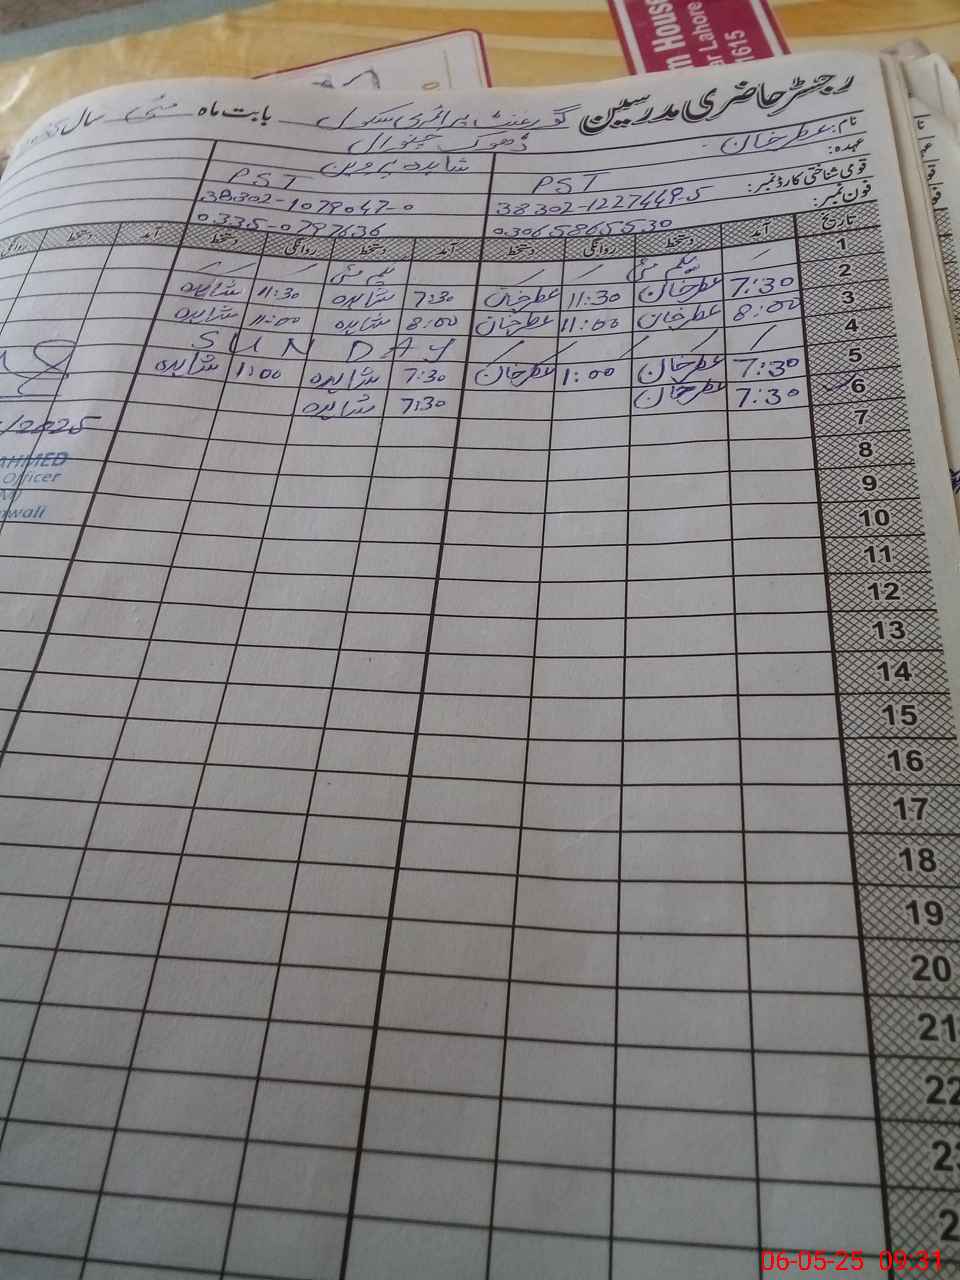 m House
r Lahore
1615
رجسٹر حاضری مدرسین گورنمنٹ پرائمری سکول بابت ماہ مئی سال
ڈھوک
نام: عطرخان شاہدہ پروین
عہدہ: PST PST
قومی شناختی کارڈ نمبر: 38302-1227449-5 38302-1079047-0
فون نمبر: 03065865530 0335-0797636
تاریخ آمد دستخط روانگی دستخط آمد دستخط روانگی دستخط آمد دستخط روانگی
1 یکم مئی یکم مئی
2 7:30 عطرخان 11:30 عطرخان 7:30 شاہدہ 11:30 شاہدہ
3 8:00 عطرخان 11:00 عطرخان 8:00 شاہدہ 11:00 شاہدہ
4 SUNDAY
5 7:30 عطرخان 1:00 عطرخان 7:30 شاہدہ 1:00 شاہدہ
6 7:30 عطرخان 7:30 شاہدہ
7
8
9
10
11
12
13
14
15
16
17
18
19
20
21
22
23
/2025
AHMED
Officer
wali
06-05-25 09:31